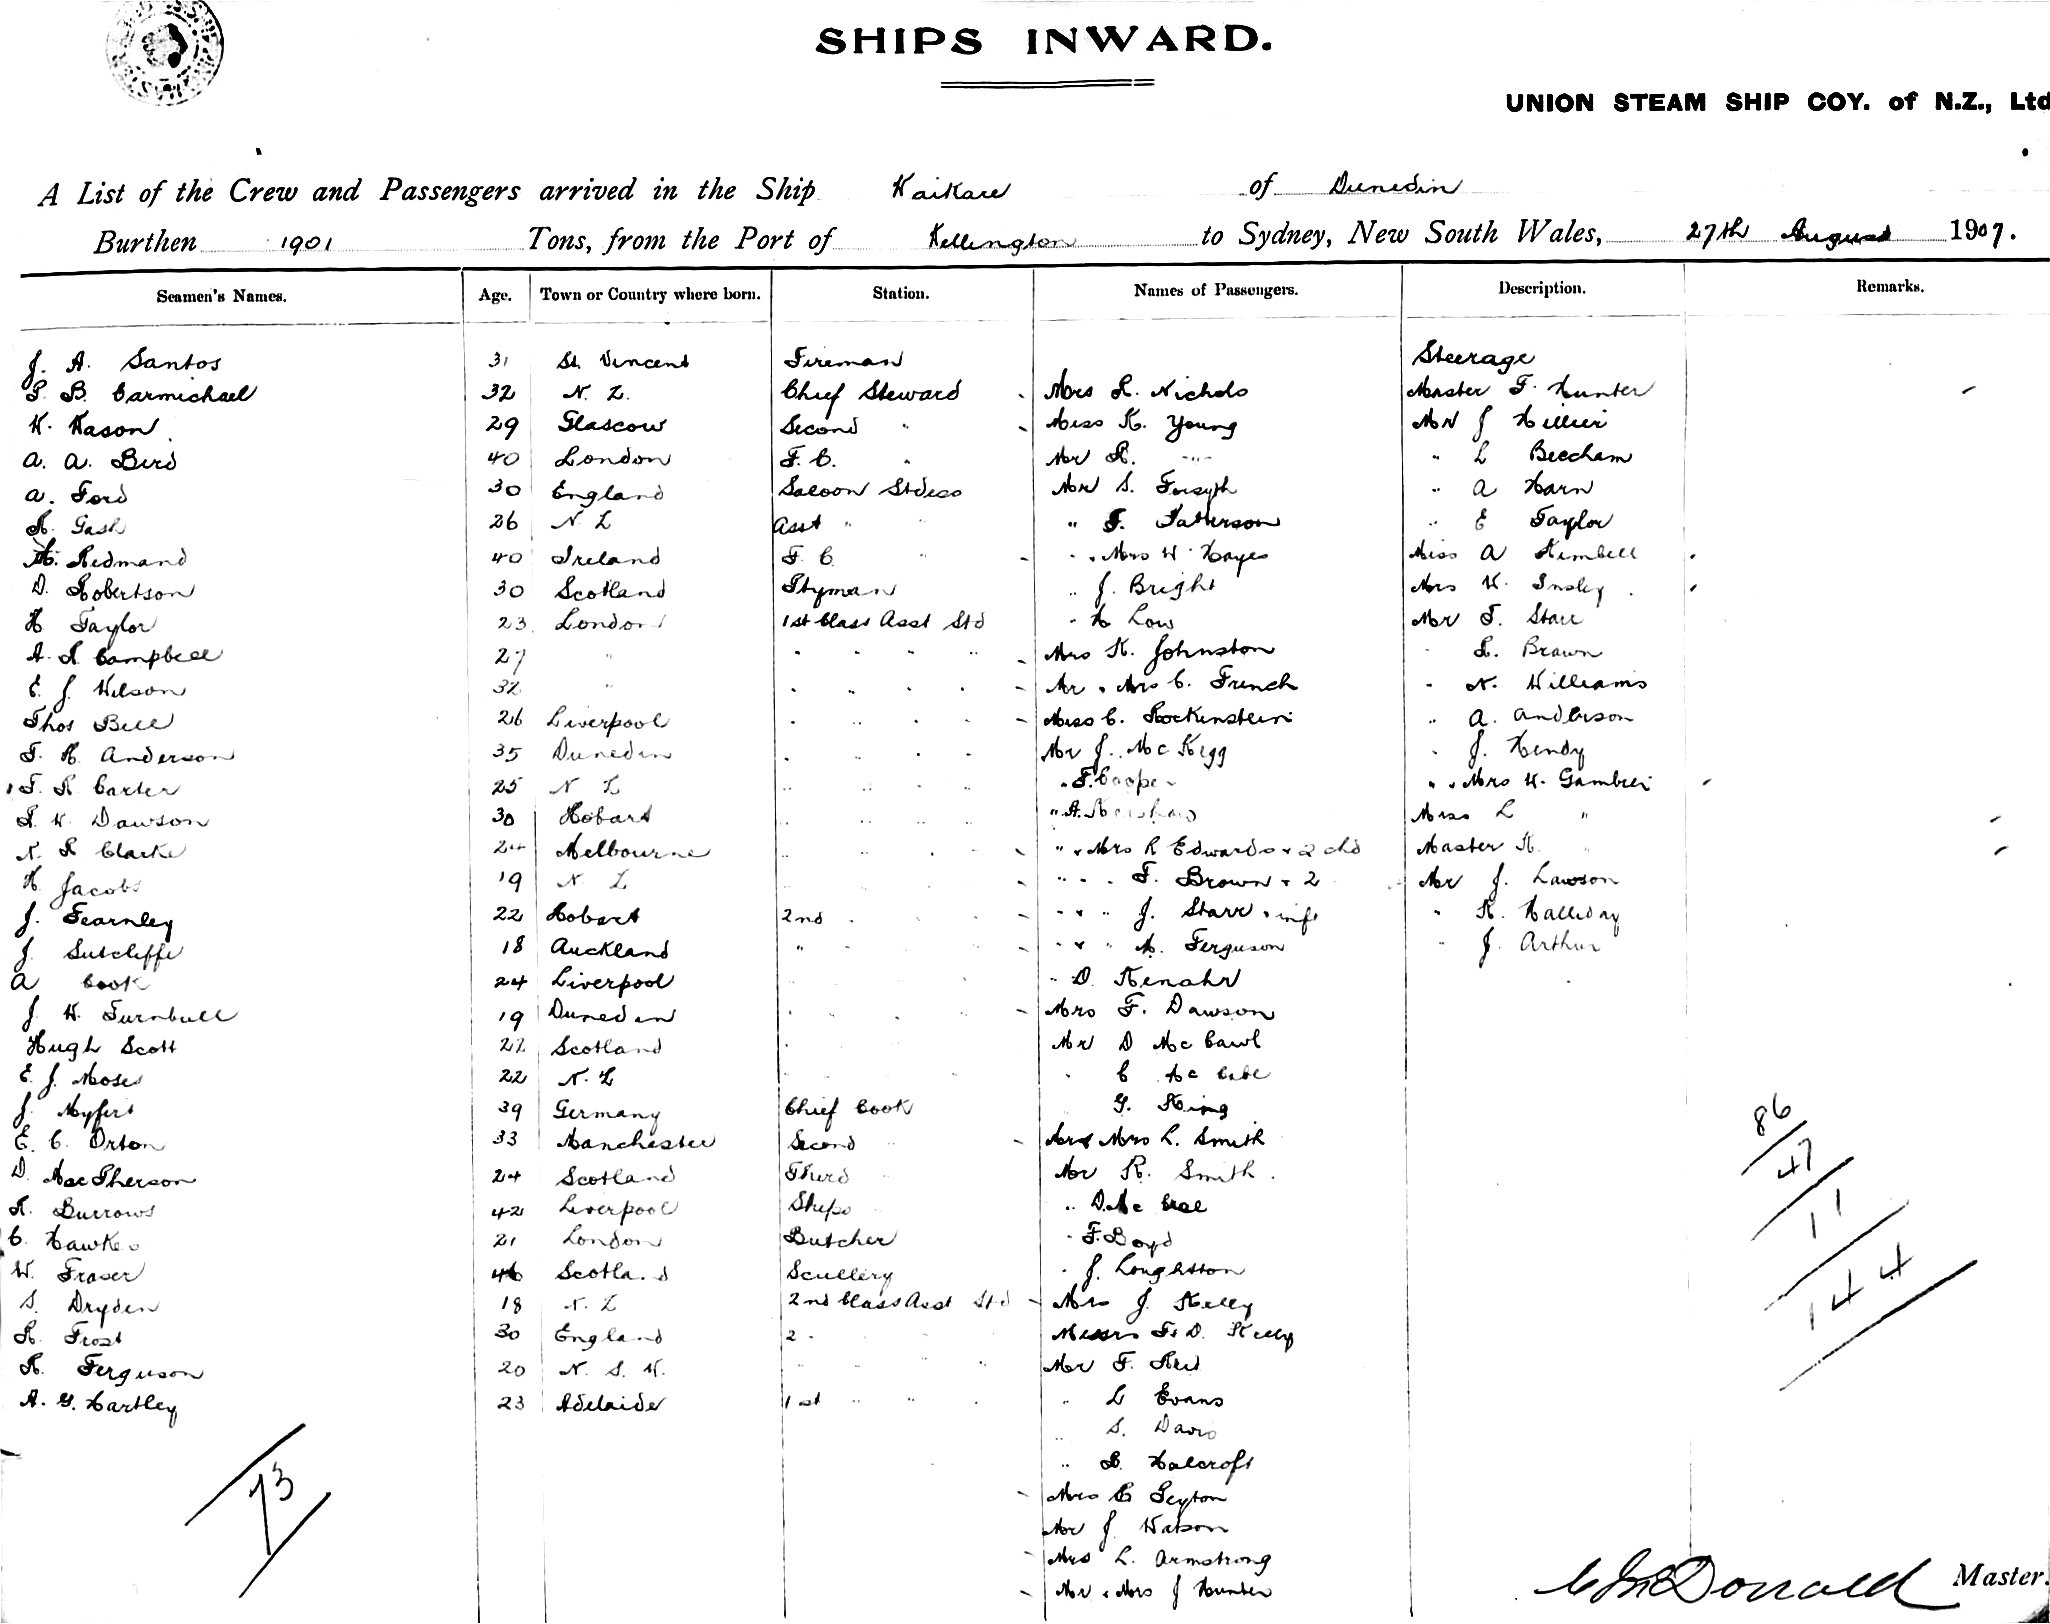 SHIPS INWARD.
UNION STEAM SHIP COY. of N.Z., Ltd
A List of the Crew and Passengers arrived in the Ship Waikare of Dunedin
Burthen 1901 Tons, from the Port of Wellington to Sydney, New South Wales, 27th August 1907.
Seamen's Names. Age. Town or Country where born. Station. Names of Passengers. Description. Remarks.
J. A. Santos 31 St. Vincent Fireman Steerage
P. B. Carmichael 32 N. Z. Chief Steward Mrs R. Nichols Master F. Hunter
W. Wason 29 Glascow Second " Miss K. Young Mr J Hillier
A. A. Bird 40 London F. C. " Mr R. " " L Beecham
A. Ford 30 England Saloon Stdess Mr S. Forsyth " A Harn
R. Gash 26 N Z Asst " " " F. Patterson " E Taylor
H. Redmand 40 Ireland F. C. " " " Mrs W. Hayes Miss A Kimbell
D. Robertson 30 Scotland Ptyman " J. Bright Mrs W. Insley
H Taylor 23 London 1st Class Asst Std " H Low Mr F. Starr
A. R Campbell 27 " " " " " Mrs K. Johnston " R. Brown
E. J. Wilson 32 " " " " " Mr & Mrs C. French " N. Williams
Thos Bell 26 Liverpool " " " " Miss C. Rockinstein " A. Anderson
F. H. Anderson 35 Dunedin " " " " Mr J. McKegg " J. Hendy
F. R Carter 25 N Z " " " " " F. Cooper " & Mrs W. Gambrei
R W Dawson 30 Hobart " " " " " A. Kershaw Miss L "
N. R Clarke 24 Melbourne " " " " " & Mrs R Edwards & 2 chd Master K. "
H Jacobs 19 N Z " " " " " " " F. Brown & 2 Mr J. Lawson
J. Fearnley 22 Hobart 2nd " " " " & " J. Starr & inft " R. Halliday
J. Sutcliffe 18 Auckland " " " " " & " A. Ferguson " J. Arthur
A Cook 24 Liverpool " " " " " D. Kenahr
J. W. Turnbull 19 Dunedin " " " " Mrs F. Dawson
Hugh Scott 22 Scotland " " " " Mr D McCawl
E. J. Moses 22 N. Z " " " " " C McCabe
J. Myfert 39 Germany Chief Cook G. King
E. C. Orton 33 Manchester Second " Mr & Mrs L. Smith
D. MacPherson 24 Scotland Third " Mr R. Smith
R. Burrows 42 Liverpool Ships " " D. McCrae
C. Hawkes 21 London Butcher " F. Boyd
W. Fraser 46 Scotland Scullery " J. Loughston
S. Dryden 18 N. Z 2nd Class Asst Std Mrs J. Kelly
R. Frost 30 England 2 " Messrs F. D. Kelly
R. Ferguson 20 N. S. W. " " " Mr F. Reid
A. G. Hartley 23 Adelaide 1st " " " " L Evans
" S. Davis
" B. Halcroft
Mrs C Peyton
Mr J. Watson
Mrs L. Armstrong
Mr & Mrs J Hunter
86
47
11
144
73
C McDonald Master.